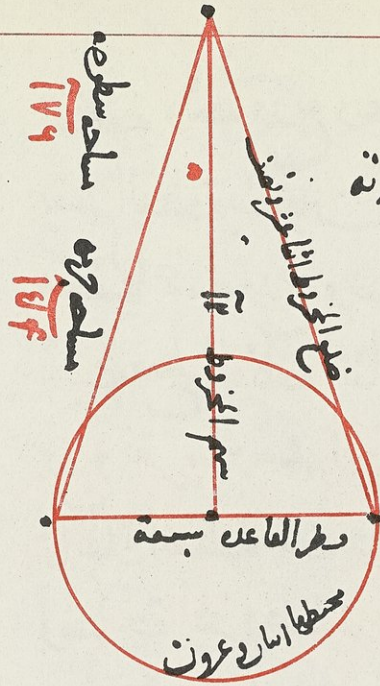 مساحه سطوحه
١٧٦
مساحه جرمه
١٥۴
ضلع المخروط اثنا عشر ونصف
سهم المخروط ١٢
قطر القاعده سبعة
محيطها اثنان وعشرون